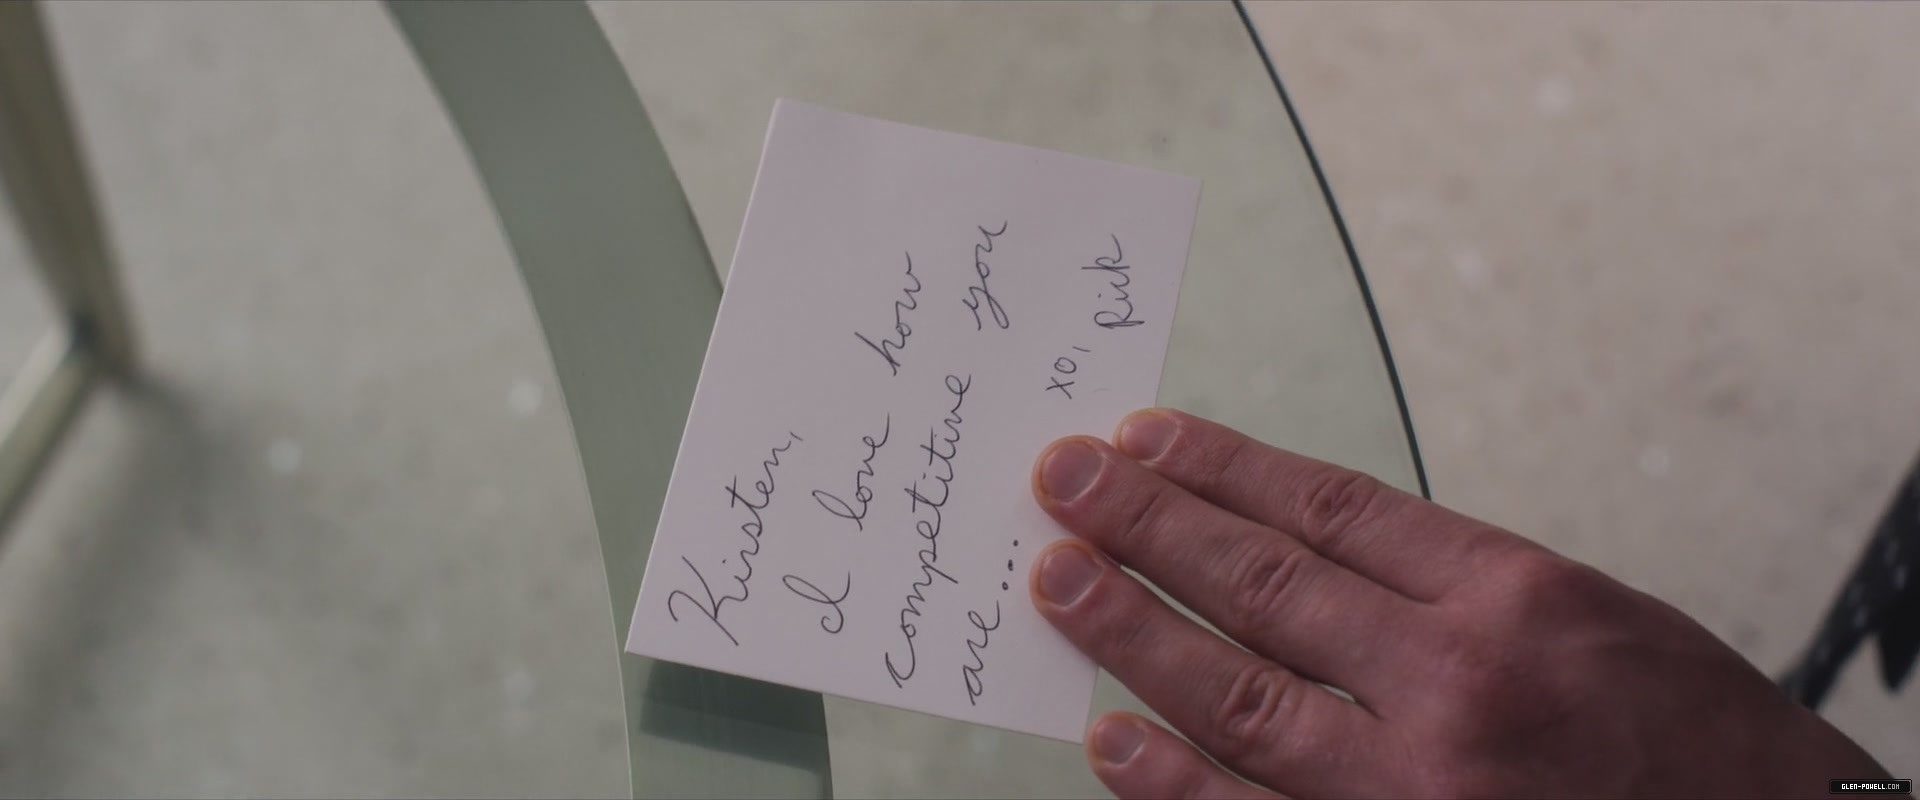 Kirsten,
I love how
competitive you
are...
xo,
Rick
GLEN-POWELL.COM